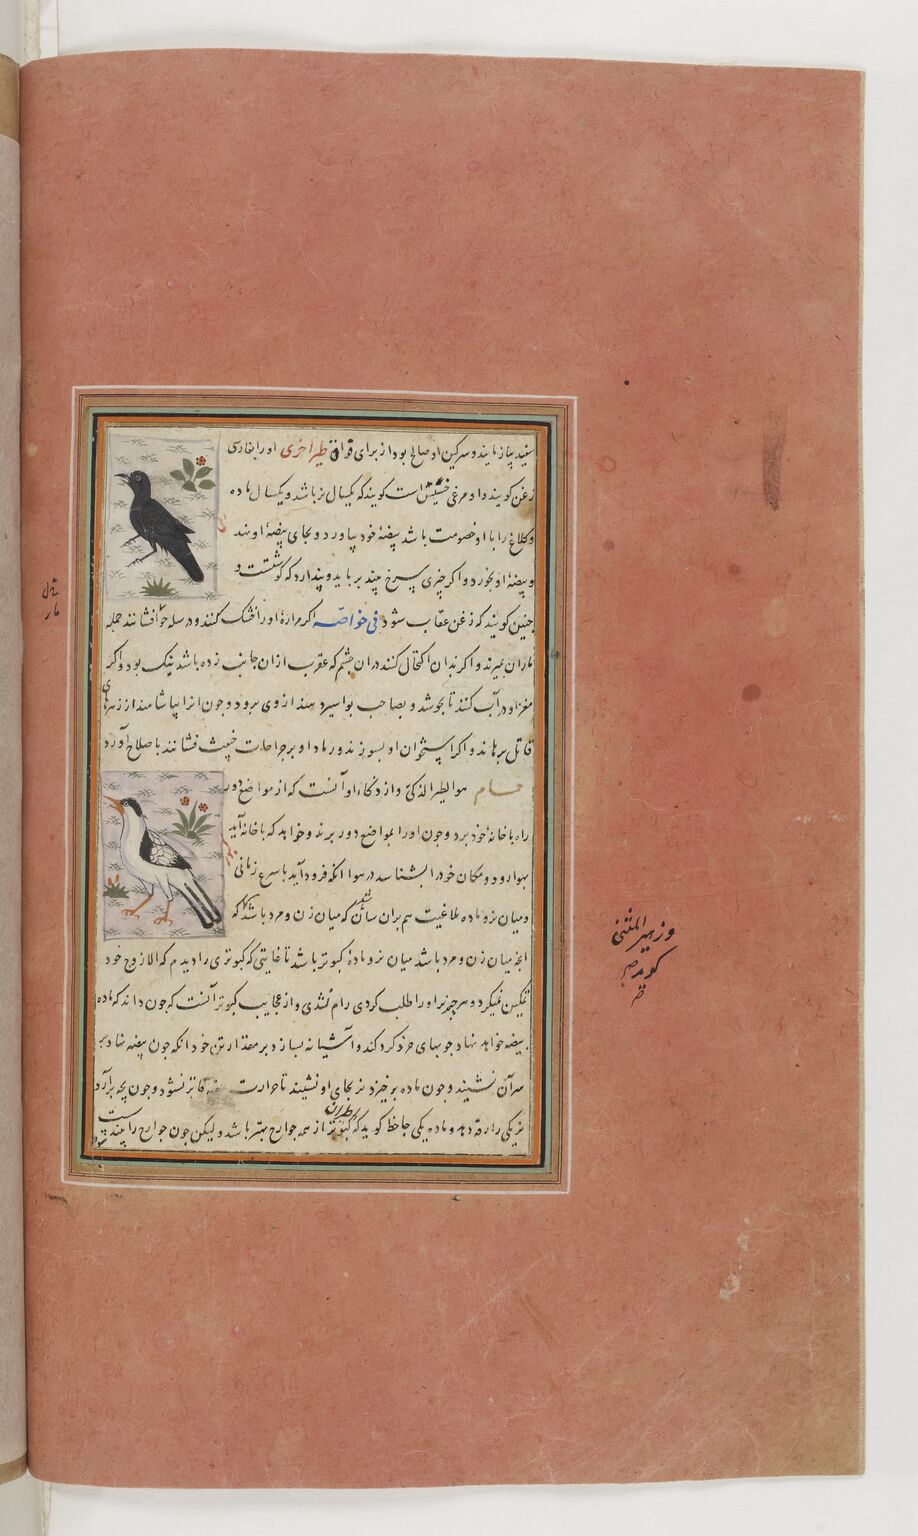 سفید پیاز مانند و سرکین او صالح بود از برای قوافق طیر اخری او را بفارسی
زغن کویند و او مرغی خسیس است کویند که یکسال نر باشد و یکسال ماده
و کلاغ را با او خصومت باشد بیضهٔ خود بیاورد و بجای بیضهٔ او نهد
و بیضهٔ او بخورد و اکر چیزی سرخ بیند برباید و پندارد که کوشتست و
جنین کویند که زغن عقاب شود فی خواصه اکر مرارهٔ او را خشک کنند و در سله افشانند جمله
ماران بمیرند و اکر بدان اکتحال کنند در ان چشم که عقرب از ان جانب زده باشد نیک بود و اکر
مغز او در آب کنند تا بجوشد و بصاحب بواسیر دهند از وی برود و جون انرا بیاشامند از زهرهای
قاتل برهاند و اکر استخوان او بسوزند و رماد او بر جراحات خبیث فشانند باصلاح آورد
حمام هو الطیر الذکی و از ذکاء او آنست که از مواضع دور
راه با خانهٔ خود برد و جون او را بمواضع دور برند و خواهد که با خانه آید
بهوا رود و مکان خود را بشناسد در هوا انکه فرود آید باسرع زمانی
و میان نر و ماده ملاعبت هم بران سان که میان زن و مرد باشد که
انجه میان زن و مرد باشد میان نر و مادهٔ کبوتر باشد تا غایتی که کبوتری را دیدم که الا زوج خود
تمکین نمیکرد و هر جند نر او را طلب کردی رام نشدی و از عجایب کبوتر آنست که جون داند که ماده
بیضه خواهد نهاد جوبهای خرد کرد کند و آشیانه بسازد بر مقدار تن خود انکه جون بیضه نهاد بر
سر آن نشیند و جون ماده برخیزد نر بجای او نشیند تا حرارت بیضه فاتر نشود و جون بچه برآرد
نر یکی را زقه دهد و ماده یکی جاحظ کوید که طیران کبوتر از همه جوارح بهتر باشد و لیکن جون جوارح را بیند
و زهیر المثنی
کوید
مار